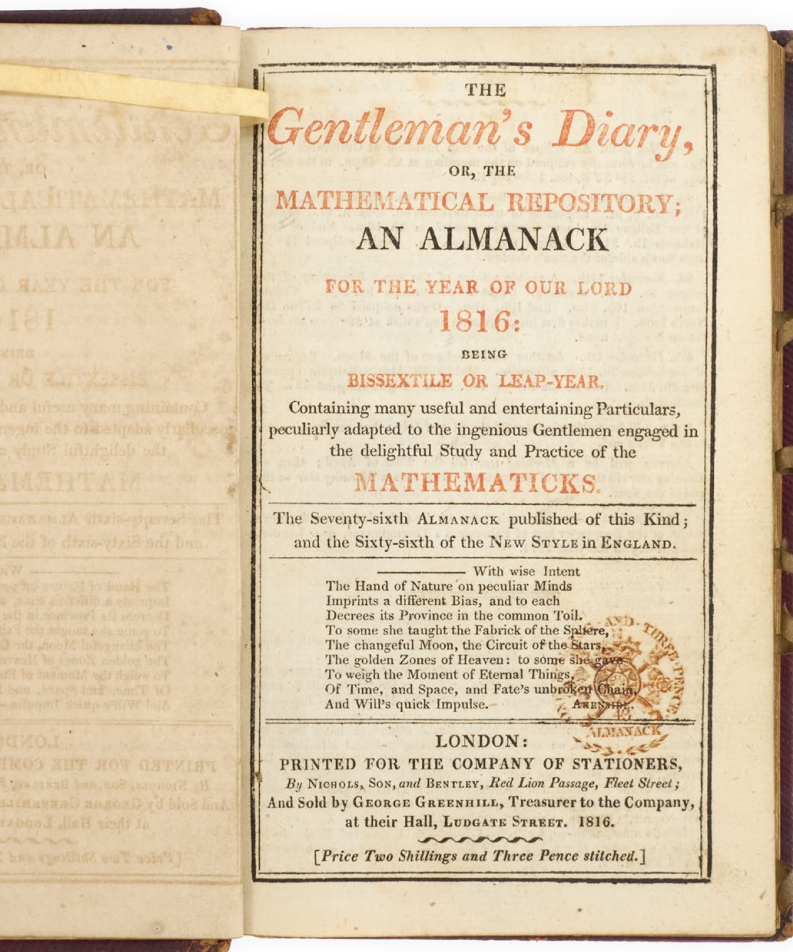 THE
Gentleman's Diary,
OR, THE
MATHEMATICAL REPOSITORY;
AN ALMANACK
FOR THE YEAR OF OUR LORD
1816:
BEING
BISSEXTILE OR LEAP-YEAR.
Containing many useful and entertaining Particulars,
peculiarly adapted to the ingenious Gentlemen engaged in
the delightful Study and Practice of the
MATHEMATICKS.
The Seventy-sixth ALMANACK published of this Kind;
and the Sixty-sixth of the NEW STYLE in ENGLAND.
With wise Intent
The Hand of Nature on peculiar Minds
Imprints a different Bias, and to each
Decrees its Province in the common Toil.
To some she taught the Fabrick of the Sphere,
The changeful Moon, the Circuit of the Stars,
The golden Zones of Heaven: to some she gave
To weigh the Moment of Eternal Things,
Of Time, and Space, and Fate's unbroken Chain,
And Will's quick Impulse. AKENSIDE.
AND THREE PENCE
ALMANACK
LONDON:
PRINTED FOR THE COMPANY OF STATIONERS,
By NICHOLS, SON, and BENTLEY, Red Lion Passage, Fleet Street;
And Sold by GEORGE GREENHILL, Treasurer to the Company,
at their Hall, LUDGATE STREET. 1816.
[Price Two Shillings and Three Pence stitched.]